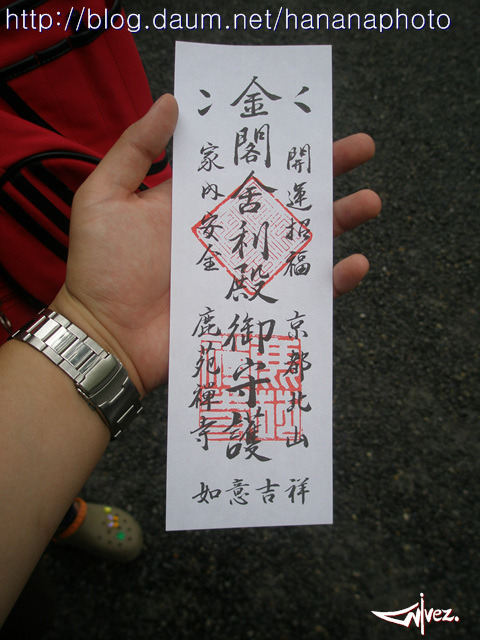 http://blog.daum.net/hananaphoto
開運招福
京都北山
金閣舎利殿御守護
家内安全
鹿苑禅寺
如意吉祥
nivez.